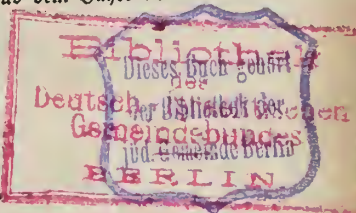 Bibliothek
der
Deutsch-Israelitischen
Gemeindebundes
BERLIN
Dieses Buch gehört
der Bibliothek der
jüd. Gemeinde Berlin